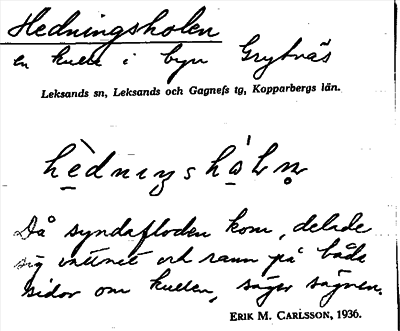 Hedningsholen
en kulle i byn Grytnäs
Leksands sn, Leksands och Gagnefs tg, Kopparbergs län.
hèdnıŋshɑ̀ln̥
Då syndafloden kom, delade
sig vattnet och rann på både
sidor om kullen, säger sägnen.
ERIK M. CARLSSON, 1936.